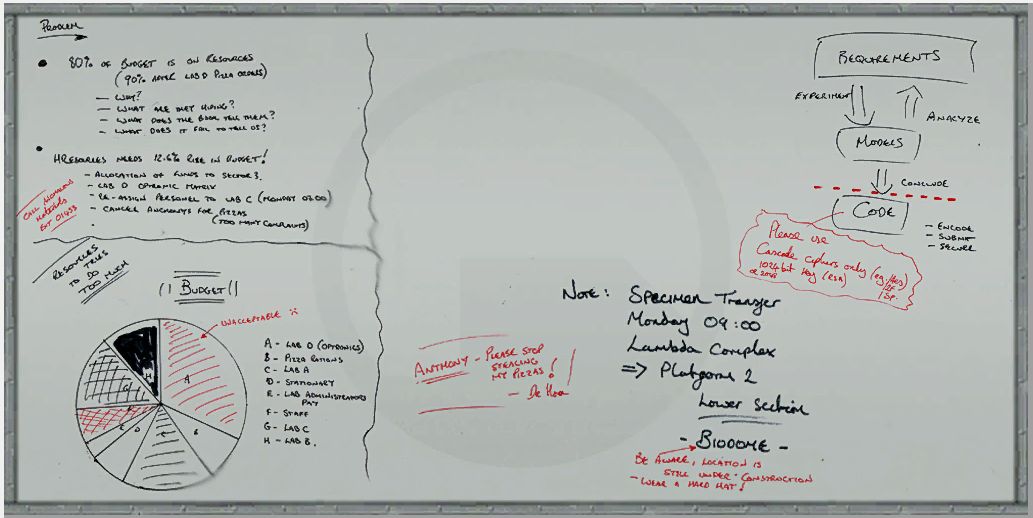 PROBLEM
80% OF BUDGET IS ON RESOURCES
(90% AFTER LAB D PIZZA ORDERS)
— WHY?
— WHAT ARE THEY HIDING?
— WHAT DOES THE BOOK TELL THEM?
— WHAT DOES IT FAIL TO TELL US?
HRESOURCES NEEDS 12.6% RISE IN BUDGET!
- ALLOCATION OF FUNDS TO SECTOR 3.
- LAB D OPTRONIC MATRIX
- RE-ASSIGN PERSONEL TO LAB C (MONDAY 07.00)
- CANCEL ANCHONYS FOR PIZZAS
(TOO MANY COMPLAINTS)
CALL ANOMALOUS
MATERIALS
EXT 01433
RESOURCES
TO TRIES
TO DO
TOO MUCH
BUDGET
UNACCEPTABLE
A
B
C
D
E
F
G
H
A - LAB D (OPTRONICS)
B - PIZZA RATIONS
C - LAB A
D - STATIONARY
E - LAB ADMINISTRATORS
PAY
F - STAFF
G - LAB C
H - LAB B.
REQUIREMENTS
EXPERIMENT
ANALYZE
MODELS
CONCLUDE
CODE
- ENCODE
- SUBMIT
- SECURE
Please use
Cascade ciphers only (eg.
1024 bit key (RSA)
or 2048
NOTE: SPECIMEN Transfer
Monday 09:00
Lambda Complex
=> Platform 2
Lower Section
- BIODOME -
BE AWARE, LOCATION IS
STILL UNDER CONSTRUCTION
- WEAR A HARD HAT!
ANTHONY - PLEASE STOP
STEALING
MY PIZZAS!